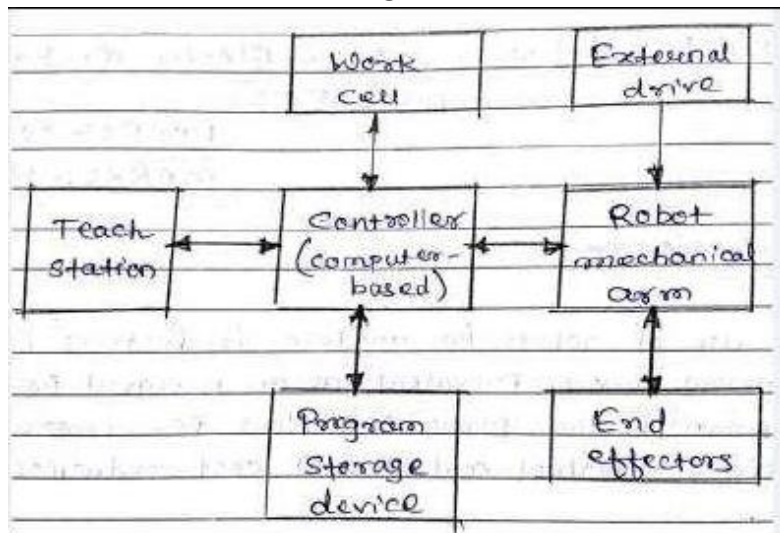 Work
cell
External
drive
Teach
station
Controller
(computer-
based)
Robot
mechanical
arm
Program
storage
device
End
effectors